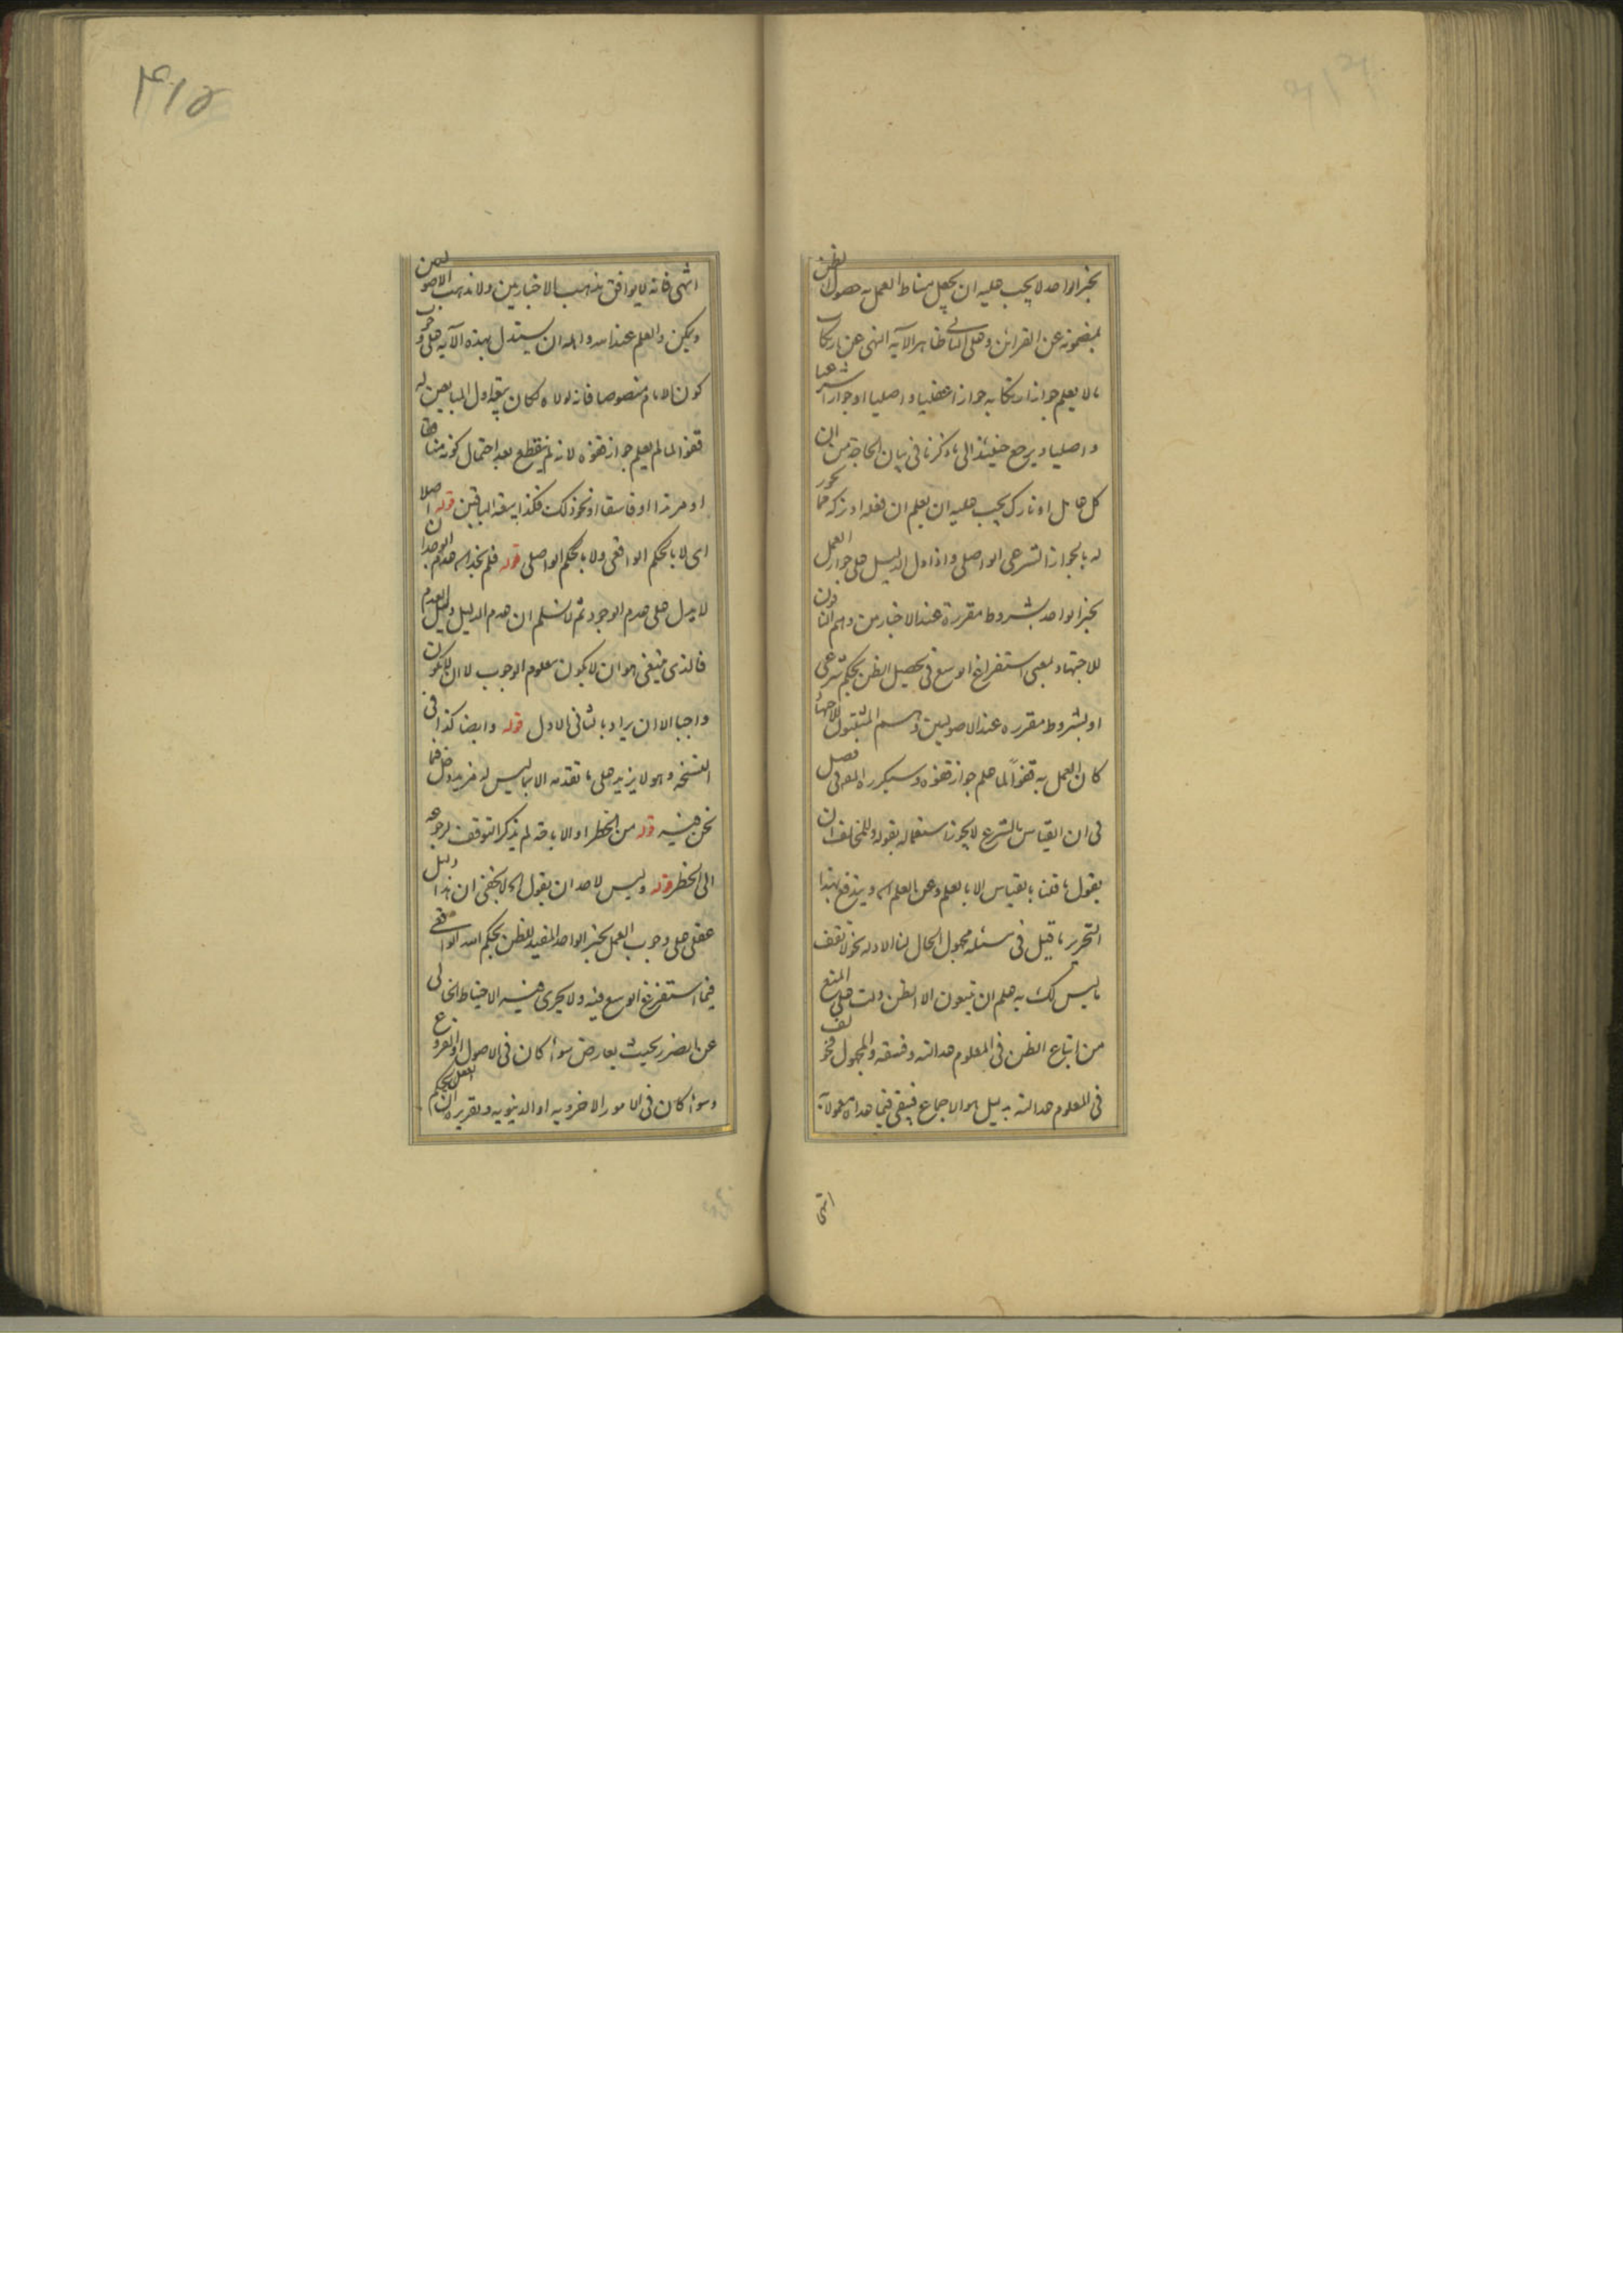 بخبر الواحد لا يجب عليه ان يجعل مناط العمل به حصول الظن
بمضمونه عن القرائن وعلى الثانى ظاهر الآيه النهى عن ارتكاب
ما لا يعلم جواز ارتكابه جوازا عقليا واصليا او جوازا شرعيا
واصليا ويرجع حينئذ الى ما ذكرنا فى بيان الحاجة من ان
كل عامل او تارك يجب عليه ان يعلم ان فعله او تركه مما يجوز
له بالجواز الشرعى الواصلى واذا دل الدليل على جواز العمل
بخبر الواحد بشروط مقررة عند الاخبارين وهم النافون
للاجتهاد بمعنى استفراغ الوسع فى تحصيل الظن بحكم شرعى
او بشروط مقرره عند الاصوليين وهم المثبتون للاجتهاد
كان العمل به قفوا لما علم جواز قفوه وسيكرره المص فى فصل
فى ان القياس بالشرع لا يجوز استعماله بقوله وللمخالف ان
يقول ما قلنا بالقياس الا بالعلم وعن العلم اه ويندفع بهذا
التحرير ما قيل فى مسئله مجهول الحال لنا الادله نحو لا تقف
ما ليس لك به علم ان يتبعون الا الظن دلت على المنع
من اتباع الظن فى المعلوم عدالته وفسقه والمجهول فخولف
فى المعلوم عدالته بدليل هو الاجماع فيبقى فيما عداه معمولا به
انتهى
۴۱۵
انتهى فانه لا يوافق مذهب الاخباريين ولا مذهب الاصوليين
ويمكن والعلم عند الله واهله ان يستدل بهذه الآيه على وجوب
كون الامام منصوصا فانه لولاه لكان بيعة اول المبايعين له
قفوا لما لم يعلم جواز قفوه لانه لم ينقطع بعد احتمال كونه منافقا
او مرتدا او فاسقا او نحو ذلك فكذا بيعة الباقين قوله اصلا
اى لا بالحكم الواقعى ولا بالحكم الواصلى قوله فلم يجد اه عدم الوجدان
لا يدل على عدم الوجود ثم لا نسلم ان عدم الدليل دليل العدم
فالذى ينبغى هو ان لا يكون معلوم الوجوب لا ان لا يكون
واجبا الا ان يراد بالثانى الاول قوله وايضا كذا فى
النسخه وهو لا يزيد على ما تقدمه الا بما ليس له مزيد دخل فيما
نحن فيه قوله من الحظر او الاباحة لم يذكر التوقف لرجوعه
الى الحظر قوله وليس لاحد ان يقول اه لا يخفى ان هذا دليل
عقلى على وجوب العمل بخبر الواحد المفيد للظن بحكم الله الواقعى
فيما استفرغ الوسع فيه ولا يجرى فيه الاحتياط الخالى
عن الضرر بحيث يعارض سواء كان فى الاصول او الفروع
وسواء كان فى الامور الاخرويه او الدنيويه وتقريره ان العقل يحكم